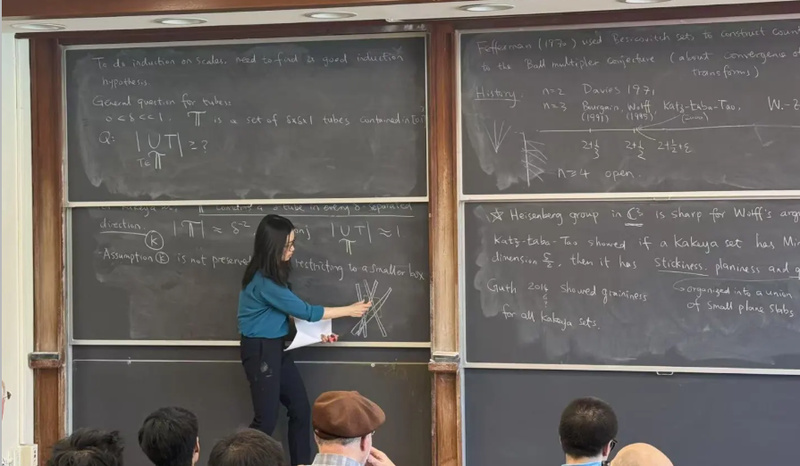 To do induction on scales, need to find a good induction
hypothesis.
General question for tubes
0 < δ << 1. 𝕋 is a set of δxδx1 tubes contained in
Q: | ∪ T | ≥ ?
T∈𝕋
tube in every δ-separated
direction |𝕋| ≈ δ⁻² | ∪ T | ≈ 1
(K) 𝕋
- Assumption (K) is not restricting to a smaller box
Fefferman (1970) used Besicovitch sets to construct
to the Ball multiplier conjecture (about convergence of
transforms)
History: n=2 Davies 1971
n=3 Bourgain, Wolff Katz-Łaba-Tao, W.-
(1991) (1995) (2000)
2+1/3 2+1/2 2+1/2+ε
n≥4 open.
☆ Heisenberg group in ℂ³ is sharp for Wolff's
Katz-Łaba-Tao showed if a kakeya set has
dimension 5/2, then it has Stickiness, planiness and
Guth 2014 showed graininess organized into a union
for all kakeya sets. of small plane slabs